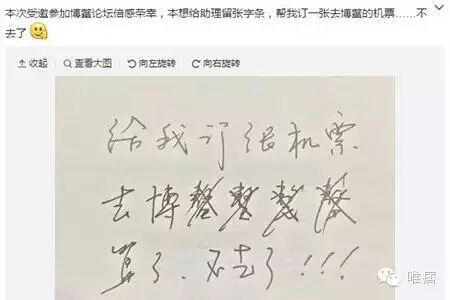 本次受邀参加博鳌论坛倍感荣幸，本想给助理留张字条，帮我订一张去博鳌的机票……不
去了
收起 查看大图 向左旋转 向右旋转
给我订张机票
去博
算了、不去了!!!
唯痞